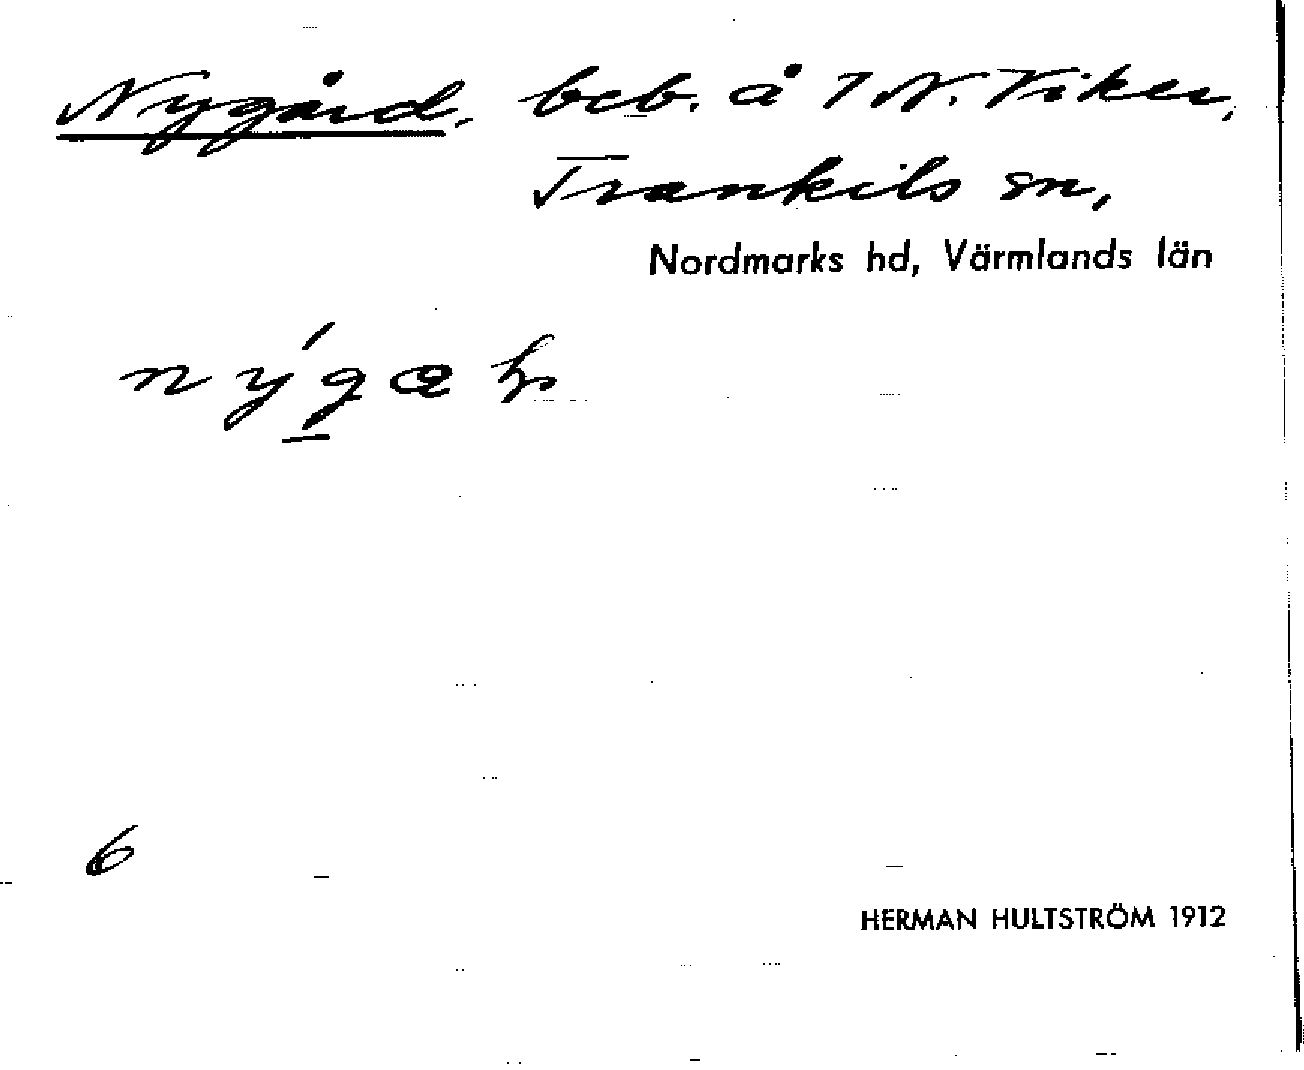 Nygård, beb. å 7 N. Viker,
Trankils sn,
Nordmarks hd, Värmlands län
6
HERMAN HULTSTRÖM 1912